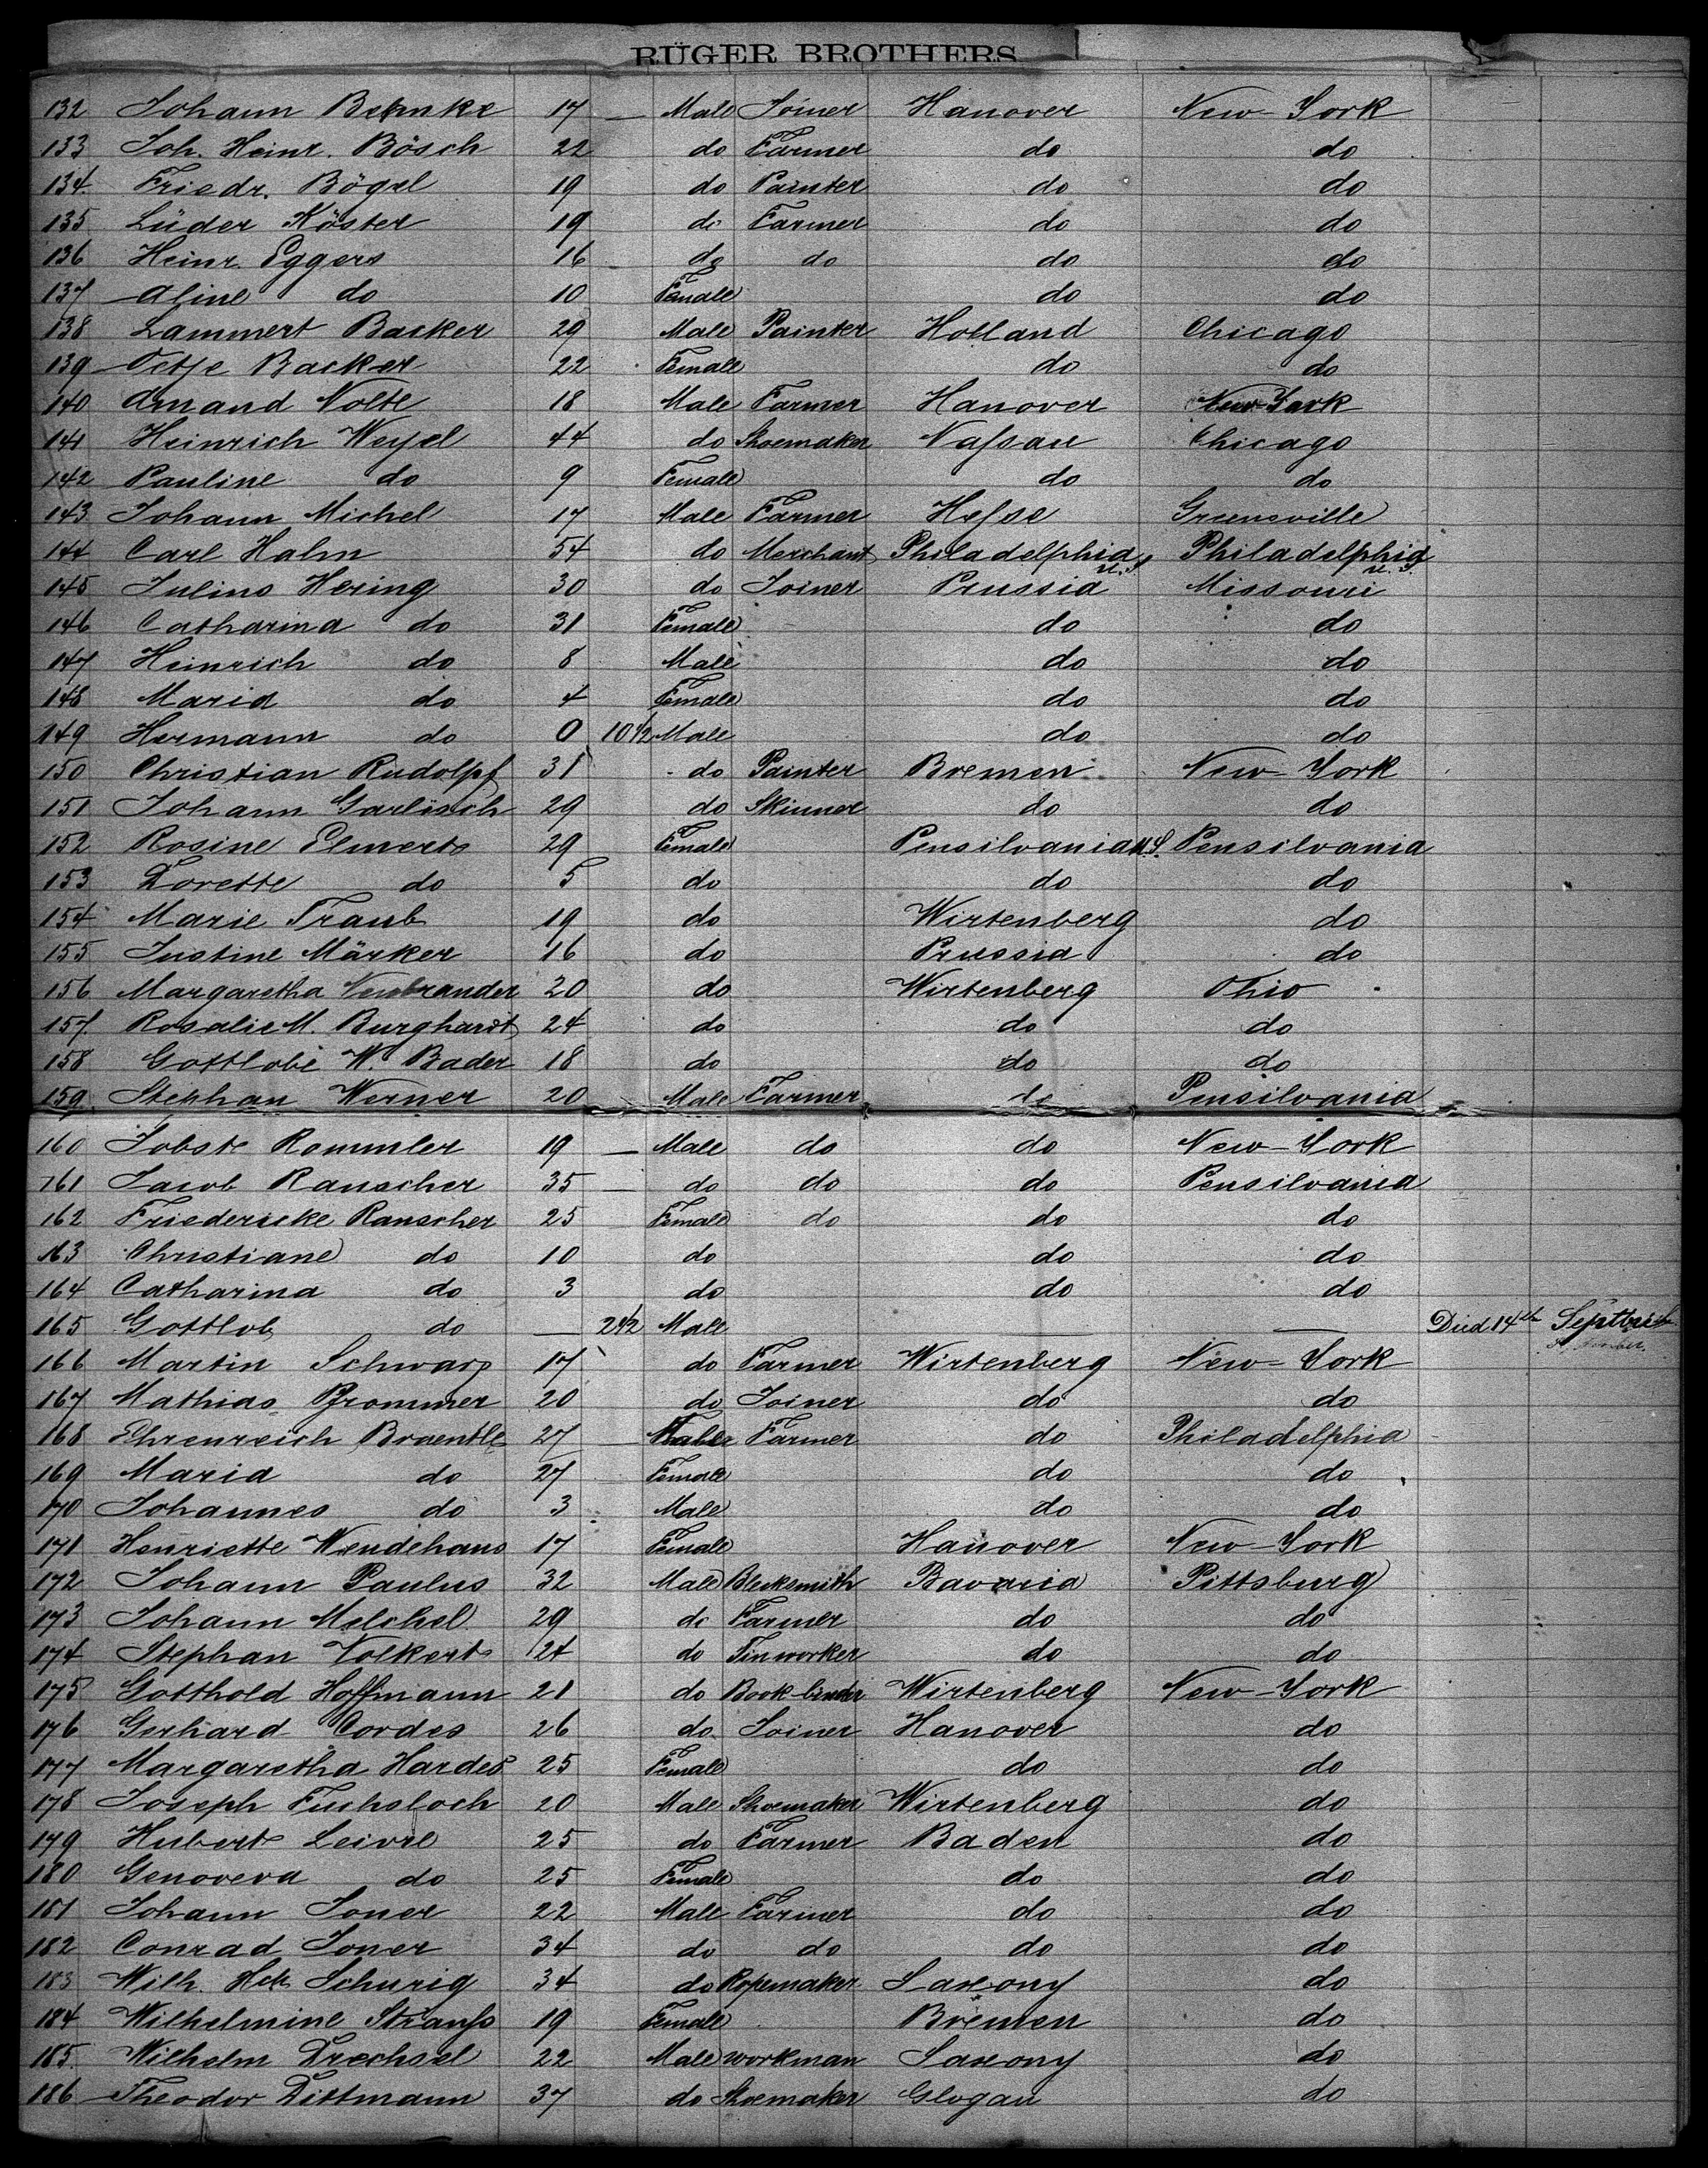 RÜGER BROTHERS
132 Johann Behnke 17 — Male Joiner Hanover New-York
133 Joh. Heinr. Bösch 22 do Farmer do do
134 Friedr. Bögel 19 do Painter do do
135 Lüder Köster 19 do Farmer do do
136 Heinr. Eggers 16 do do do do
137 Aline do 10 Female do do
138 Lammert Backer 29 Male Painter Holland Chicago
139 Oetje Backer 22 Female do do
140 Amand Nolte 18 Male Farmer Hanover New York
141 Heinrich Weysel 44 do Shoemaker Nassau Chicago
142 Pauline do 9 Female do do
143 Johann Michel 17 Male Farmer Hesse Greensville
144 Carl Hahn 54 do Merchant Philadelphia U.S. Philadelphia U.S.
145 Julius Hering 30 do Joiner Prussia Missouri
146 Catharina do 31 Female do do
147 Heinrich do 8 Male do do
148 Maria do 4 Female do do
149 Hermann do 0 10 1/2 Male do do
150 Christian Rudolpf 31 do Painter Bremen New-York
151 Johann Garlisch 29 do Skinner do do
152 Rosine Elmerts 29 Female Pensilvania U.S. Pensilvania
153 Dorette do 5 do do do
154 Marie Traub 19 do Wirtenberg do
155 Justine Märker 16 do Prussia do
156 Margaretha Neubrander 20 do Wirtenberg Ohio
157 Rosalie M. Burghardt 24 do do do
158 Gottlobe W. Bader 18 do do do
159 Stephan Werner 20 Male Farmer do Pensilvania
160 Jobste Rommler 19 — Male do do New-York
161 Jacob Rauscher 35 — do do do Pensilvania
162 Friedericke Rauscher 25 Female do do do
163 Christiane do 10 do do do
164 Catharina do 3 do do do
165 Gottlob do — 2 1/2 Male — — Died 14th September
166 Martin Schwarz 17 do Farmer Wirtenberg New-York
167 Mathias Pfrommer 20 do Joiner do do
168 Ehrenreich Braentle 27 Male Farmer do Philadelphia
169 Maria do 27 Female do do
170 Johannes do 3 Male do do
171 Henriette Wendehaus 17 Female Hanover New-York
172 Johann Paulus 32 Male Blecksmith Bavaria Pittsburg
173 Johann Melchel 29 do Farmer do do
174 Stephan Volkerts 24 do Tinworker do do
175 Gotthold Hoffmann 21 do Book-binder Wirtenberg New-York
176 Gerhard Cordes 26 do Joiner Hanover do
177 Margaretha Hardes 25 Female do do
178 Joseph Fuchsloch 20 Male Shoemaker Wirtenberg do
179 Hubert Leivre 25 do Farmer Baden do
180 Genoveva do 25 Female do do
181 Johann Joner 22 Male Farmer do do
182 Conrad Joner 34 do do do do
183 Wilh. Hch. Schurig 34 do Ropemaker Saxony do
184 Wilhelmine Strauss 19 Female Bremen do
185 Wilhelm Drechsel 22 Male workman Saxony do
186 Theodor Dittmann 37 do Shoemaker Glogau do